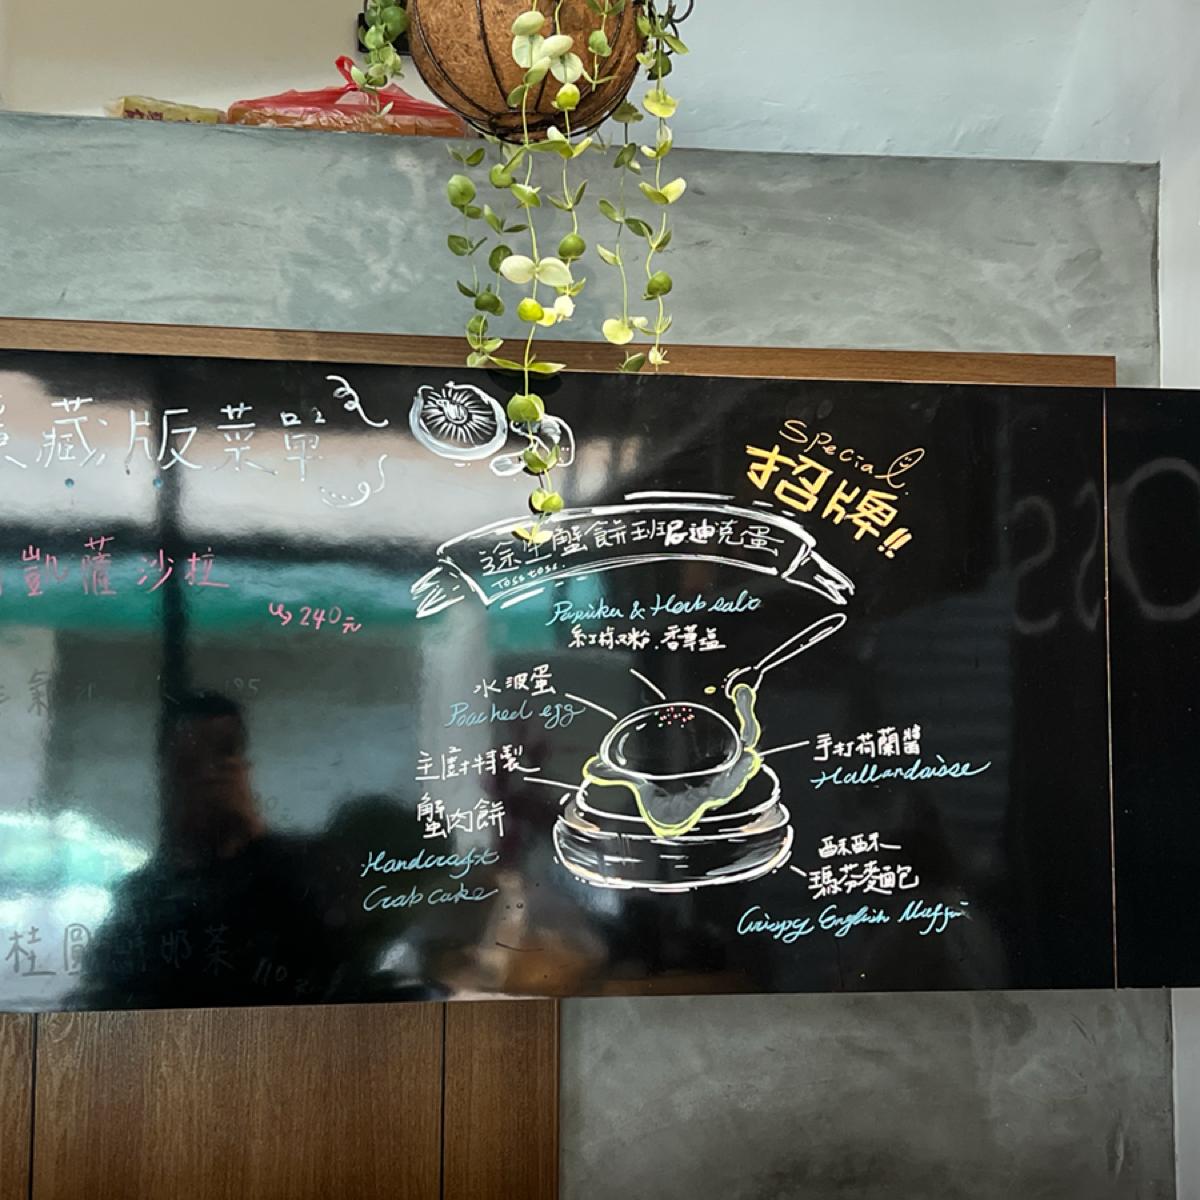 藏版菜單
凱薩沙拉
240元
桂圓 奶茶
110元
Special
招牌!!
蟹餅班尼迪克蛋
Toss toss.
Paprika & Herb salt
紅椒粉.香草塩
水波蛋
Poached egg
主廚特製
蟹肉餅
Handcraft
Crab cake
手打荷蘭醬
Hallandaisse
酥酥
瑪芬麵包
Crispy English Muffin